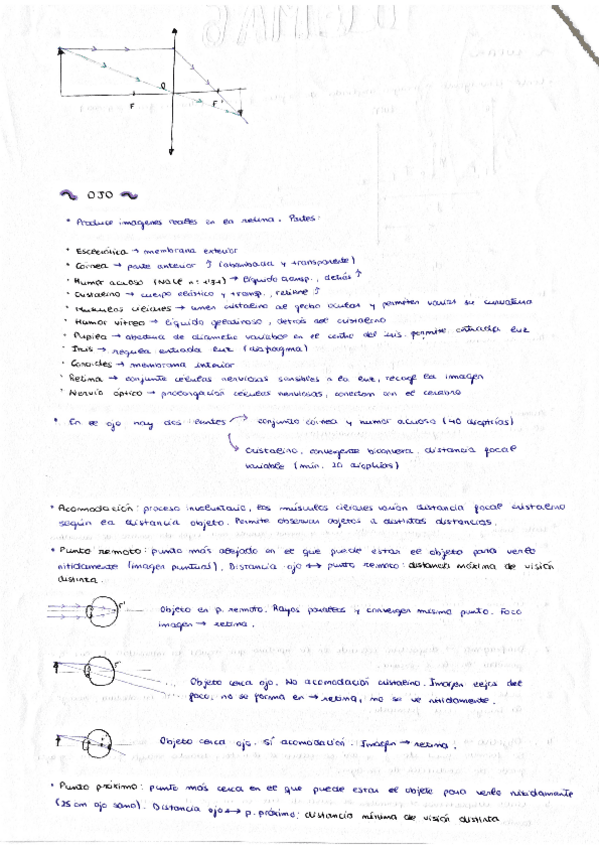 O
F
F'
OJO
• Produce imágenes reales en la retina. Partes:
• Esclerótica → membrana exterior
• Córnea → parte anterior ↑ (abombada y transparente)
• Humor acuoso → líquido transp., detrás ↑
• Cristalino → cuerpo elástico y transp., rellene ↑
• Músculos ciliares → unen cristalino al globo ocular y permiten variar su curvatura
• Humor vítreo → líquido gelatinoso, detrás del cristalino
• Pupila → abertura de diámetro variable en el centro del iris. permite entrada luz
• Iris → regula entrada luz (diafragma)
• Coroides → membrana interior
• Retina → conjunto células nerviosas sensibles a la luz, recoge la imagen
• Nervio óptico → prolongación células nerviosas, conectan con el cerebro
• En el ojo hay dos lentes → conjunto córnea y humor acuoso (40 dioptrías)
cristalino, convergente biconvexa. distancia focal
variable (mín. 20 dioptrías)
• Acomodación: proceso involuntario, los músculos ciliares varían distancia focal cristalino
según la distancia objeto. Permite observar objetos a distintas distancias.
• Punto remoto: punto más alejado en el que puede estar el objeto para verlo
nítidamente (imagen puntual). Distancia ojo ↔ punto remoto: distancia máxima de visión
distinta.
F'
Objeto en p. remoto. Rayos paralelos y convergen mismo punto. Foco
imagen → retina.
F'
Objeto cerca ojo. No acomodación cristalino. Imagen lejos del
foco, no se forma en → retina, no se ve nítidamente.
Objeto cerca ojo. Sí acomodación. Imagen → retina.
• Punto próximo: punto más cerca en el que puede estar el objeto para verlo nítidamente
(25 cm ojo sano). Distancia ojo ↔ p. próximo: distancia mínima de visión distinta